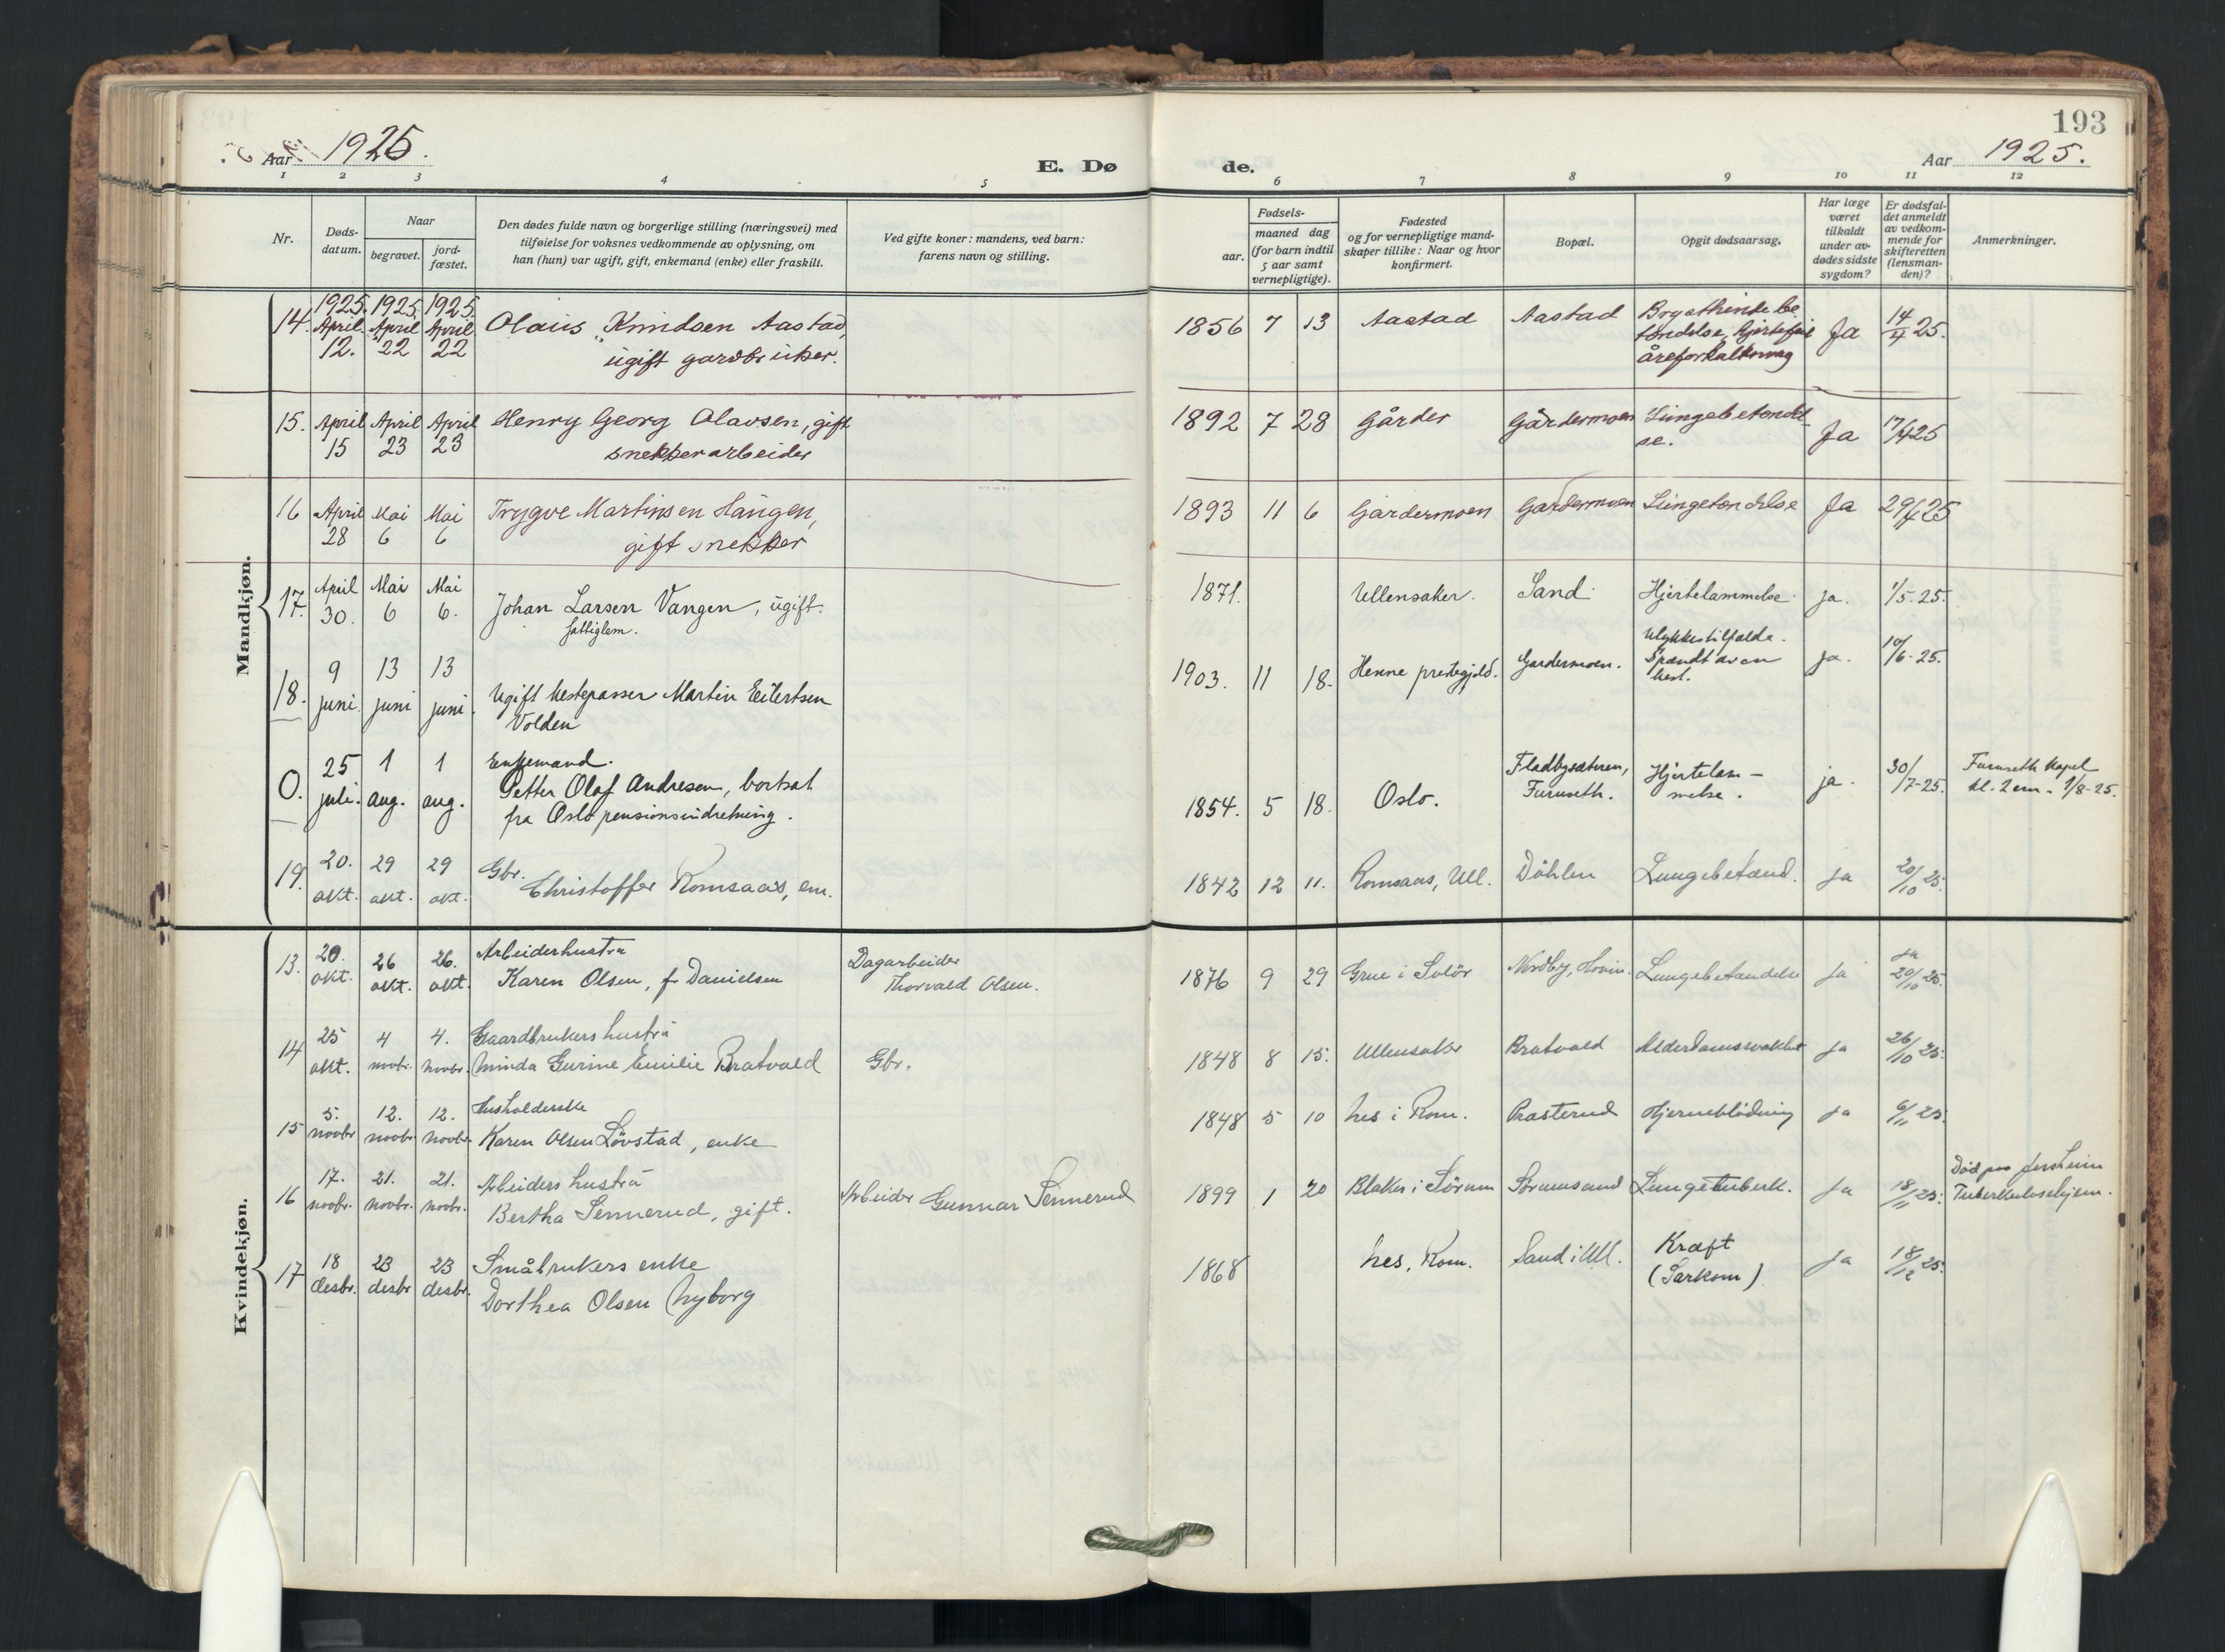 193
Aar 1925.
E. Dø
de.
Aar 1925.
1 2 3 4 5 6 7 8 9 10 11 12
Nr.
Døds-
datum.
Naar
begravet.
jord-
fæstet.
Den dødes fulde navn og borgerlige stilling (næringsvei) med
tilføielse for voksnes vedkommende av oplysning, om
han (hun) var ugift, gift, enkemand (enke) eller fraskilt.
Ved gifte koner: mandens, ved barn:
farens navn og stilling.
Fødsels-
aar.
maaned dag
(for barn indtil
5 aar samt
vernepligtige).
Fødested
og for vernepligtige mand-
skaper tillike: Naar og hvor
konfirmert.
Bopæl.
Opgit dødsaarsag.
Har læge
været
tilkaldt
under av-
dødes sidste
sygdom?
Er dødsfal-
det anmeldt
av vedkom-
mende for
skifteretten
(lensman-
den)?
Anmerkninger.
Mandkjøn.
14. 1925. April 12. 1925. April 22 1925. April 22 Olaus Knudsen Aastad,
ugift gardbruker.
1856 7 13 Aastad Aastad Brysthindebe
tændelse, Hjertefeil
åreforkalkning Ja 14/4 25.
15. April 15 April 23 April 23 Henry Georg Olavsen, gift
snekkerarbeider
1892 7 28 Gårder Gårdermoen Lungebetændel
se. Ja 17/4 25
16 April 28 Mai 6 Mai 6 Trygve Martinsen Haugen,
gift snekker
1893 11 6 Gardermoen Gardermoen Lungetændelse Ja 29/4 25
17. April 30. Mai 6 Mai 6. Johan Larsen Vangen, ugift.
fattiglem.
1871. Ullensaker. Sand. Hjertelammelse. ja. 1/5-25.
18. 9 juni. 13 juni 13 juni. Ugift hestepasser Martin Eilertsen
Volden
1903. 11 18. Henne prestegjeld. Gardermoen. Ulykkestilfælde.
Spændt av en
hest. ja. 10/6-25.
0. 25 juli. 1 aug. 1 aug. Enkemand.
Petter Olaf Andresen, bortsat
fra Oslo pensionsindretning.
1854. 5 18. Oslo. Fladbysæteren,
Furuseth. Hjertelam-
melse. ja. 30/7-25. Furuseth kapel
kl. 2 em. 1/8-25.
19. 20. okt. 29 okt. 29 okt. Gbr.
Christoffer Romsaas, em.
1842 12 11. Romsaas, Ull. Döhlen Lungebetænd. ja 20/10 25.
Kvindekjøn.
13. 20. okt. 26 okt. 26. okt. Arbeiderhustru
Karen Olsen, f. Danielsen
Dagarbeider
Thorvald Olsen.
1876 9 29 Grue i Solör Nordby, Hovin. Lungebetændelse ja ja 20/10 25.
14 25 okt. 4 novbr. 4. novbr. Gaardbrukers hustru
Minda Gurine Emilie Bratvold
Gbr.
1848 8 15. Ullensaker Bratvold Alderdomssvakhet ja 26/10 25.
15 5. novbr 12. novbr. 12. novbr. Husholderske
Karen Olsen Lövstad, enke
1848 5 10 Nes i Rom. Prasterud Hjerneblödning ja 6/11 25.
16 17. novbr. 21. novbr. 21. novbr. Arbeiders hustru
Bertha Sennerud, gift.
Arbeider Gunnar Sennerud
1899 1 20 Blaker i Sörum Sörumsand Lungetuberk. ja 18/11 25. Död paa Jessheim
Tuberkulosehjem.
17 18 desbr. 23 desbr 23 desbr. Småbrukers enke
Dorthea Olsen Nyborg
1868 Nes, Rom. Sand i Ull. Kræft
(Sarkom) ja 18/12 25.